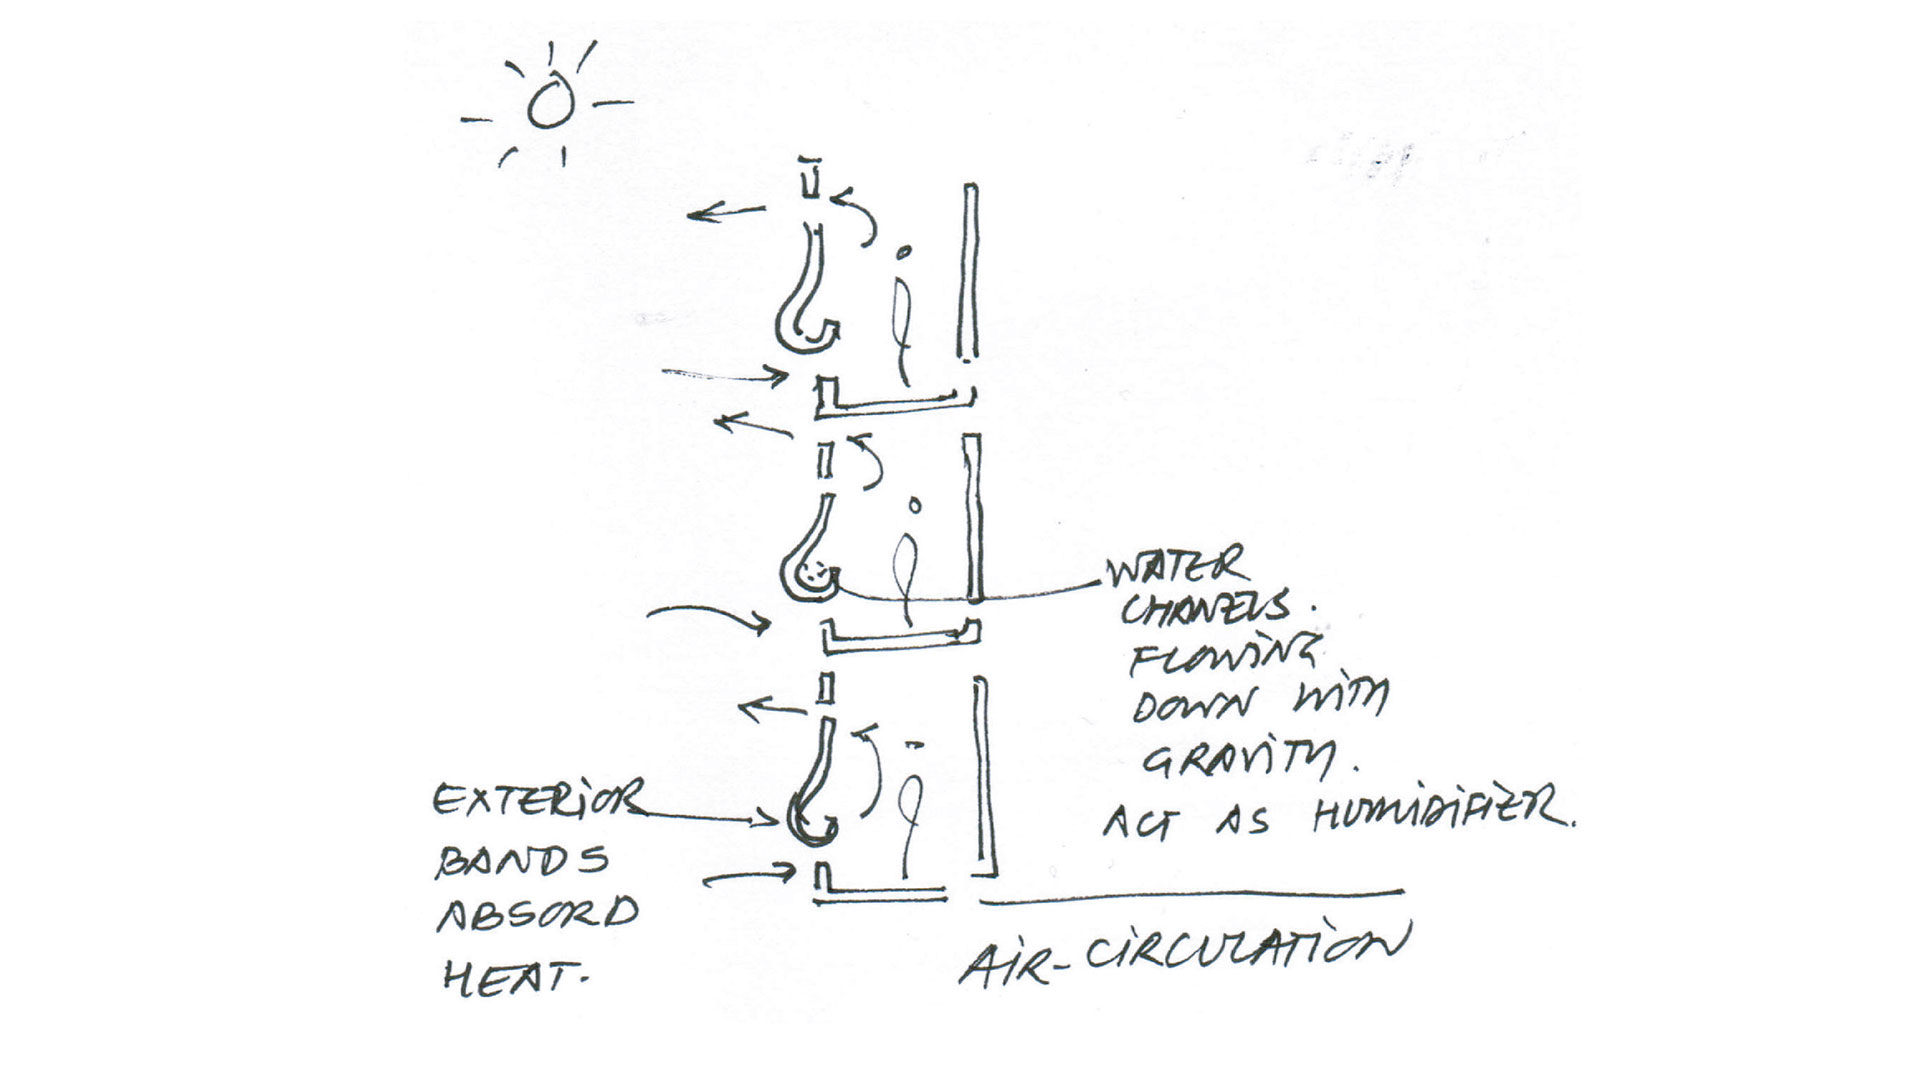 WATER
CHANELS.
FLOWING
DOWN WITH
GRAVITY.
ACT AS HUMIDIFIER.
EXTERIOR
BANDS
ABSORD
HEAT.
AIR-CIRCULATION